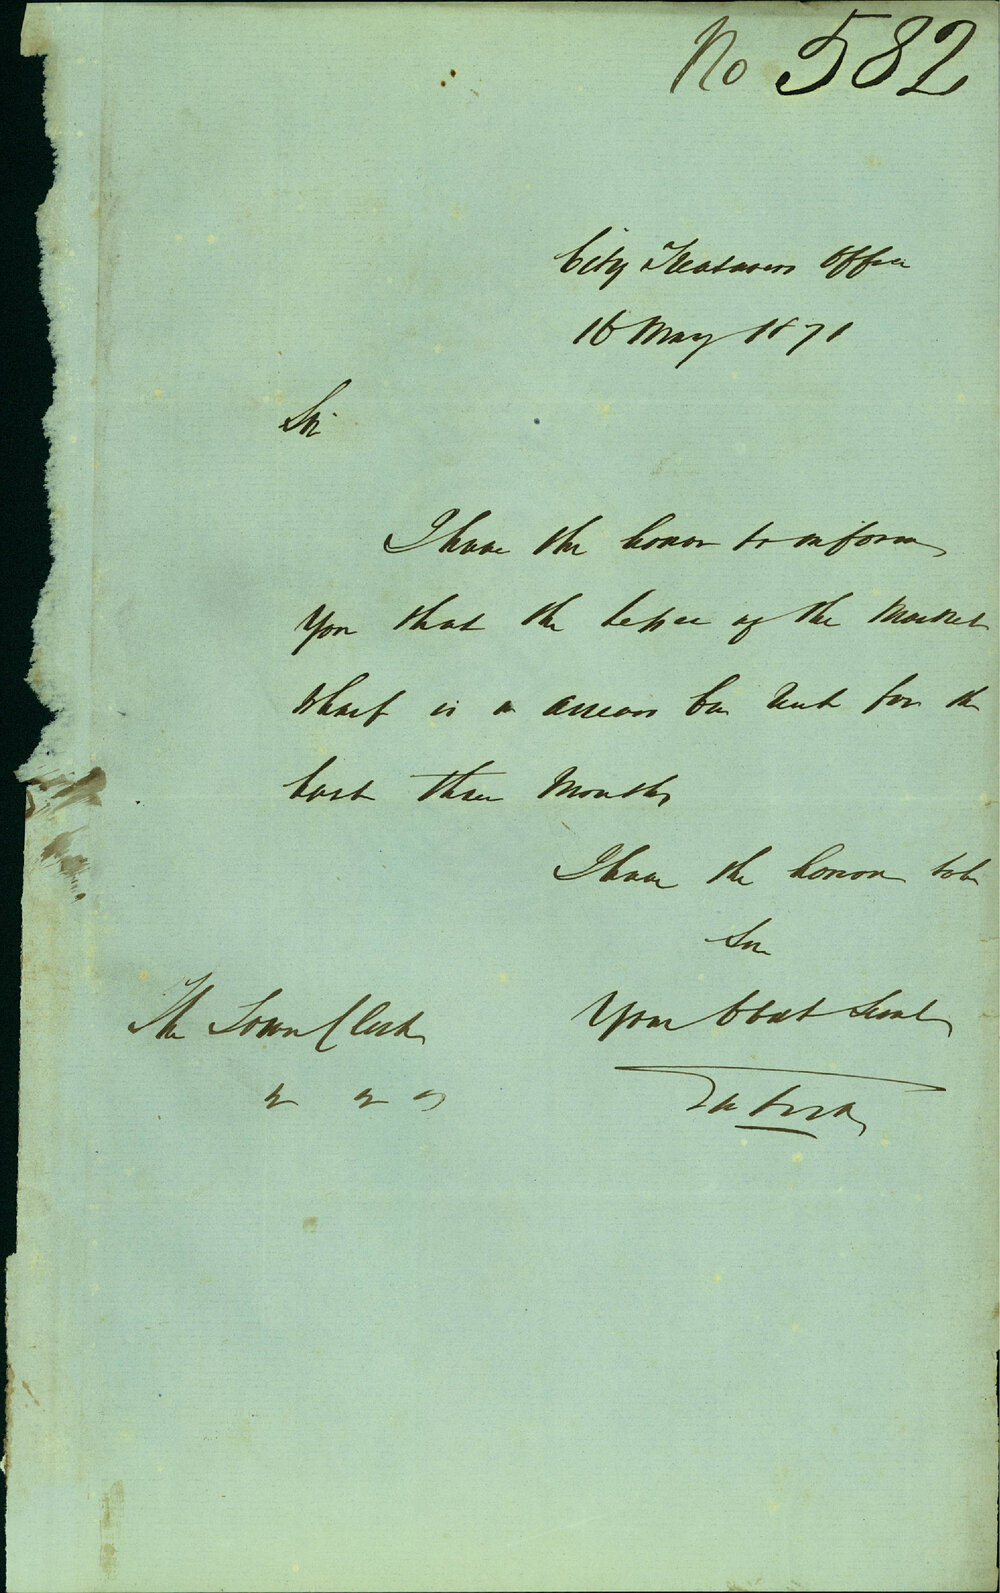 No 582
City Treasurers Office
16 May 1871
Sir
I have the honor to inform
You that the Lessee of the Market
Wharf is in arrears for Rent for the
last three Months
I have the honor to be
Sir
Your Obedt Servt
The Town Clerk